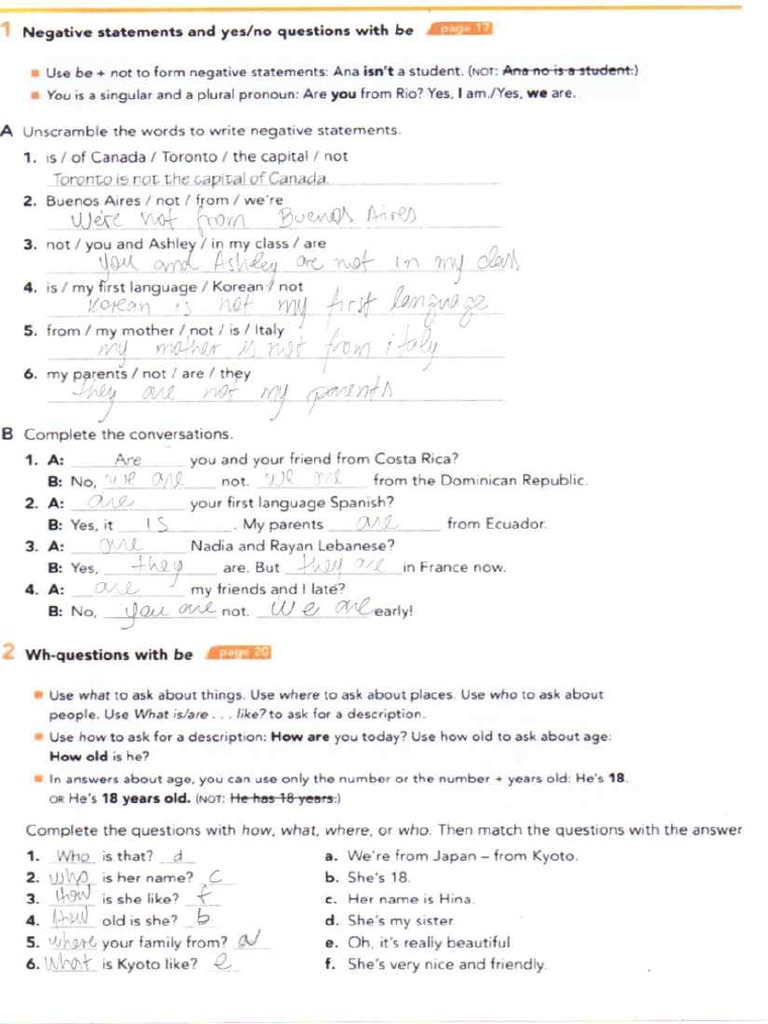 1 Negative statements and yes/no questions with be page 17
Use be + not to form negative statements: Ana isn't a student. (NOT: Ana no is a student.)
You is a singular and a plural pronoun: Are you from Rio? Yes, I am./Yes, we are.
A Unscramble the words to write negative statements.
1. is / of Canada / Toronto / the capital / not
Toronto is not the capital of Canada.
2. Buenos Aires / not / from / we're
We're not from Buenos Aires
3. not / you and Ashley / in my class / are
you and Ashley are not in my class
4. is / my first language / Korean / not
Korean is not my first language
5. from / my mother / not / is / Italy
my mother is not from italy
6. my parents / not / are / they
they are not my parents
B Complete the conversations.
1. A: Are you and your friend from Costa Rica?
B: No, we are not. we are from the Dominican Republic.
2. A: are your first language Spanish?
B: Yes, it is . My parents are from Ecuador.
3. A: are Nadia and Rayan Lebanese?
B: Yes, they are. But they are in France now.
4. A: are my friends and I late?
B: No, you are not. We are early!
2 Wh-questions with be page 20
Use what to ask about things. Use where to ask about places. Use who to ask about
people. Use What is/are . . . like? to ask for a description.
Use how to ask for a description: How are you today? Use how old to ask about age:
How old is he?
In answers about age, you can use only the number or the number + years old: He's 18.
OR He's 18 years old. (NOT: He has 18 years.)
Complete the questions with how, what, where, or who. Then match the questions with the answer
1. Who is that? d a. We're from Japan – from Kyoto.
2. who is her name? c b. She's 18.
3. How is she like? f c. Her name is Hina.
4. How old is she? b d. She's my sister.
5. where your family from? a e. Oh, it's really beautiful.
6. What is Kyoto like? e f. She's very nice and friendly.